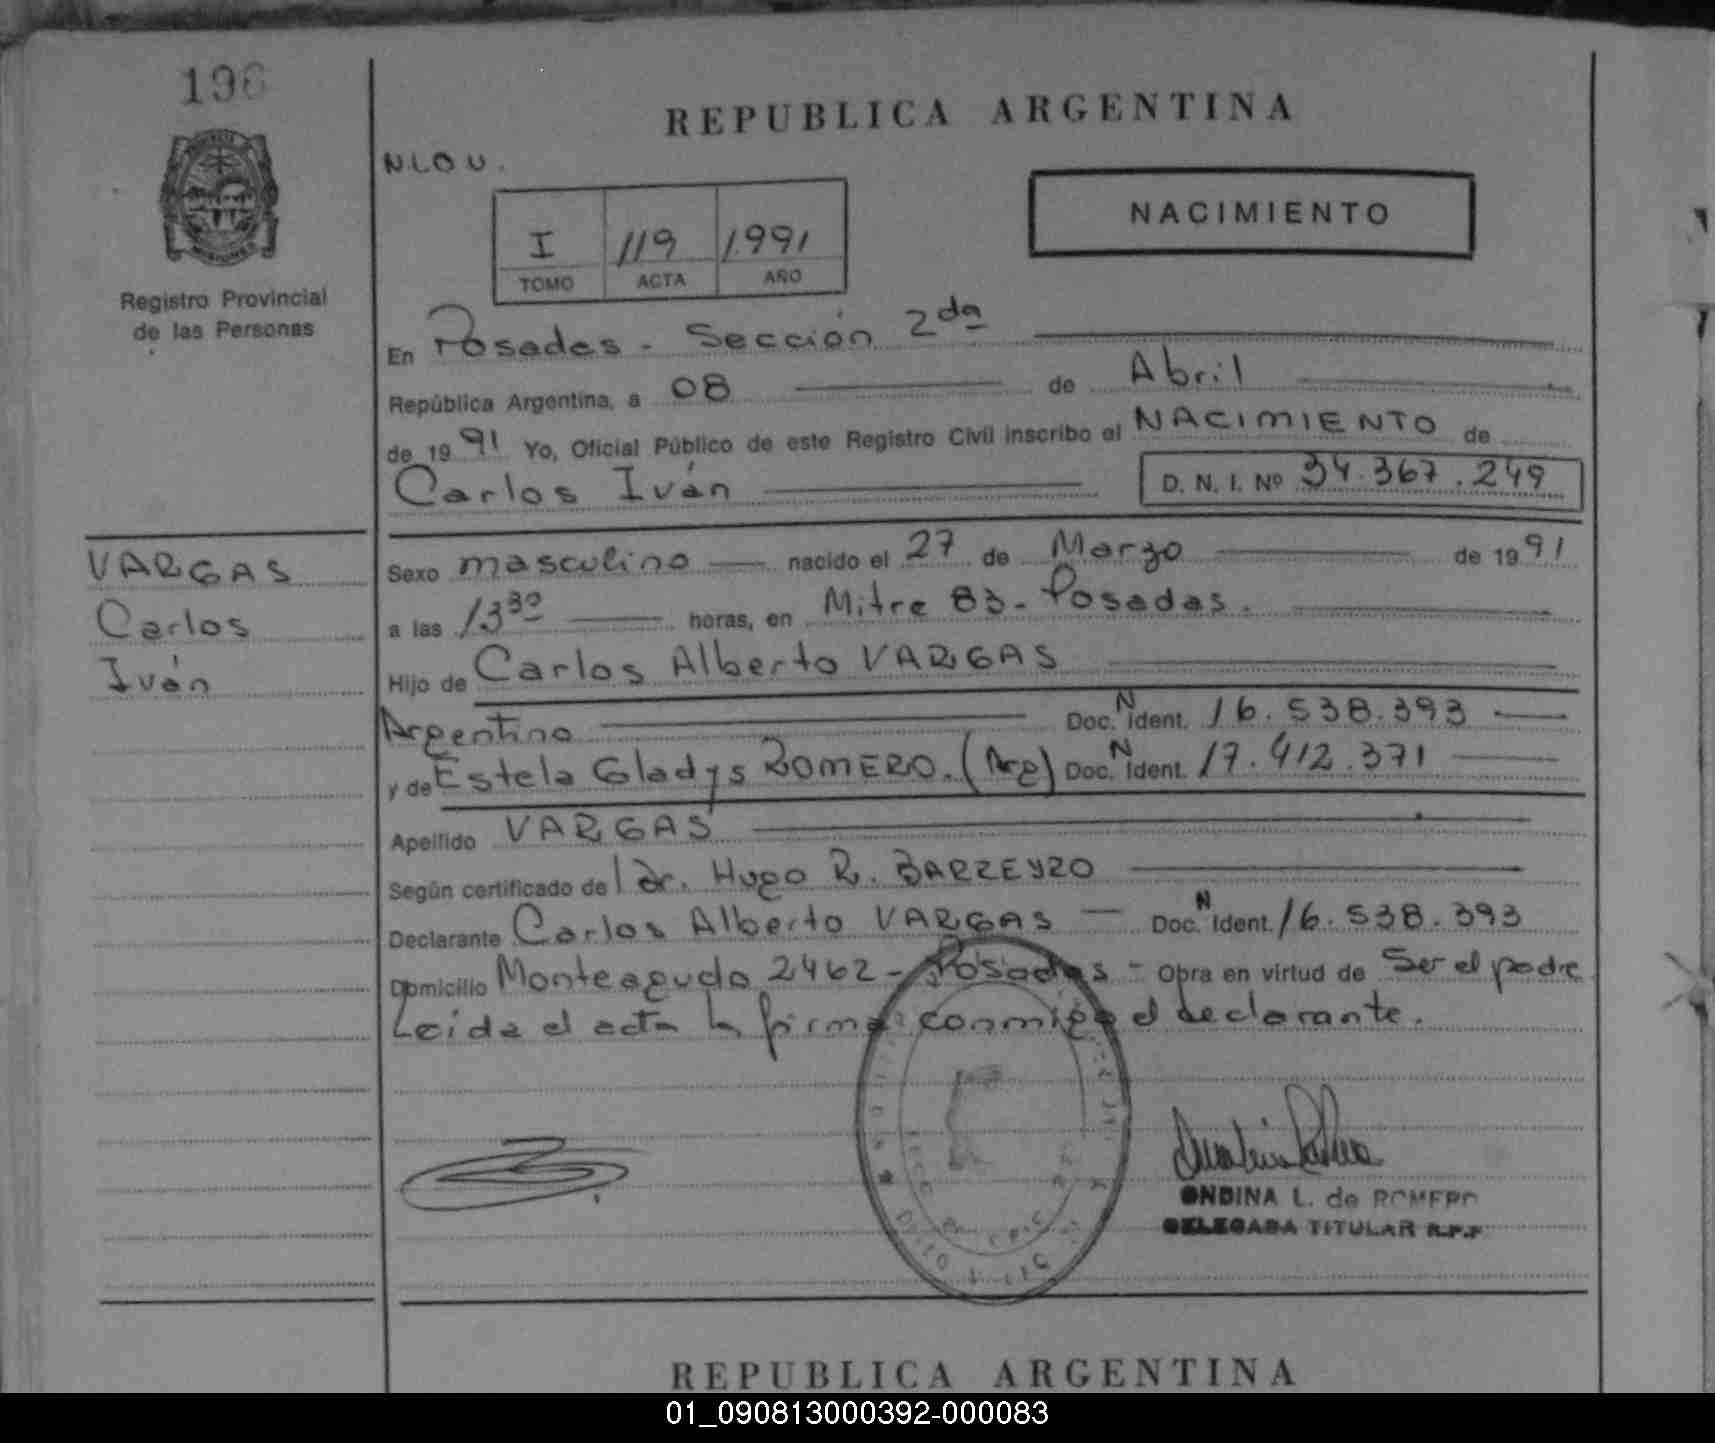 196
REPUBLICA ARGENTINA
N.L.O.U.
NACIMIENTO
I 119 1.991
TOMO ACTA AÑO
Registro Provincial
de las Personas
En Posadas - Sección 2da
República Argentina, a 08 de Abril
de 1991 Yo, Oficial Público de este Registro Civil inscribo el NACIMIENTO de
Carlos Iván D. N. I. Nº 34.367.249
VARGAS
Carlos
Iván
Sexo masculino nacido el 27 de Marzo de 1991
a las 13 30 horas, en Mitre 83 - Posadas.
Hijo de Carlos Alberto VARGAS
Argentino Doc. N Ident. 16.538.393
y de Estela Gladys ROMERO. (Arg) Doc. N Ident. 17.412.371
Apellido VARGAS
Según certificado del dr. Hugo R. BARREYRO
Declarante Carlos Alberto VARGAS Doc. N Ident. 16.538.393
Domicilio Monteagudo 2462 - Posadas - Obra en virtud de Ser el padre
Leída el acta la firma conmigo el declarante.
ONDINA L. de ROMERO
DELEGADA TITULAR R.P.P
REPUBLICA ARGENTINA
01_090813000392-000083